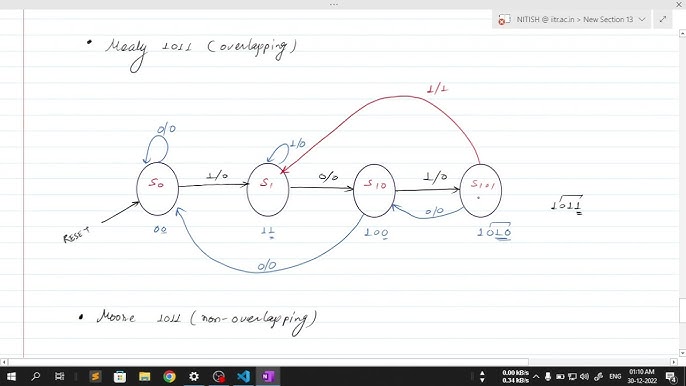 NITISH @ iitr.ac.in > New Section 13
• Mealy 1011 (overlapping)
1/1
0/0
1/0
1/0
0/0
1/0
S0
S1
S10
S101
0/0
RESET
00
11
100
1010
1011
0/0
• Moore 1011 (non-overlapping)
0.00 kB/s
0.34 kB/s
ENG
01:10 AM
30-12-2022